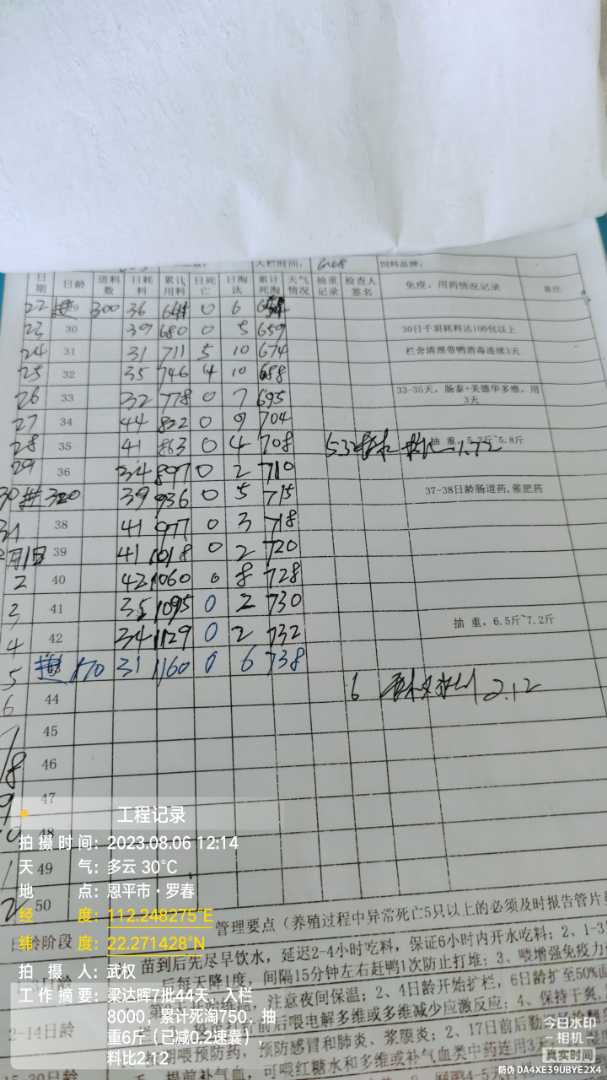 入栏时间： 饲料品牌：
日期 日龄 进料数 日耗料 累计用料 日死亡 日淘汰 累计死淘 天气情况 抽重记录 检查人签名 免疫、用药情况记录 备注
22 300 36 0 6
23 30 39 680 0 5 659 30日千羽耗料达100包以上
24 31 31 711 5 10 674 栏舍清理带鸭消毒连续3天
25 32 35 746 4 10 688
26 33 32 778 0 7 695 33-35天，肠泰+美德华多维，用3天
27 34 44 822 0 9 704
28 35 41 863 0 4 708 1.72
29 36 34 897 0 2 710
30 320 39 936 0 5 715 37-38日龄肠道药，催肥药
31 38 41 977 0 3 718
月1日 39 41 1018 0 2 720
2 40 42 1060 0 8 728
3 41 35 1095 0 2 730
4 42 34 1129 0 2 732 抽重，6.5斤~7.2斤
5 170 31 1160 0 6 738
6 44 6 2.12
7 45
8 46
9 47
10 48
1 49
2 50
工程记录
拍摄时间：2023.08.06 12:14
天 气：多云 30°C
地 点：恩平市·罗春
经 度：112.248275°E
纬 度：22.271428°N
拍 摄 人：武权
工作摘要：梁达晖7批44天、入栏
8000，累计死淘750，抽
重6斤（已减0.2速囊），
料比2.12
管理要点（养殖过程中异常死亡5只以上的必须及时报告管片
日龄阶段
苗到后先尽早饮水，延迟2-4小时吃料，保证6小时内开水吃料；2、1-3
后每天降1度，间隔15分钟左右赶鸭1次防止打堆；3、喂增强免疫力
，注意夜间保温；2、4日龄开始扩栏，6日龄扩至50%
前后喂电解多维或多维减少应激反应；4、保持干爽，
2-14日龄
期喂预防药，预防感冒和肺炎、浆膜炎；2、17日前后
15-30日龄
提前补气血，可喂红糖水和多维或补气血类中药连用3天
今日水印
相机
真实时间
防伪 DA4XE39UBYE2X4